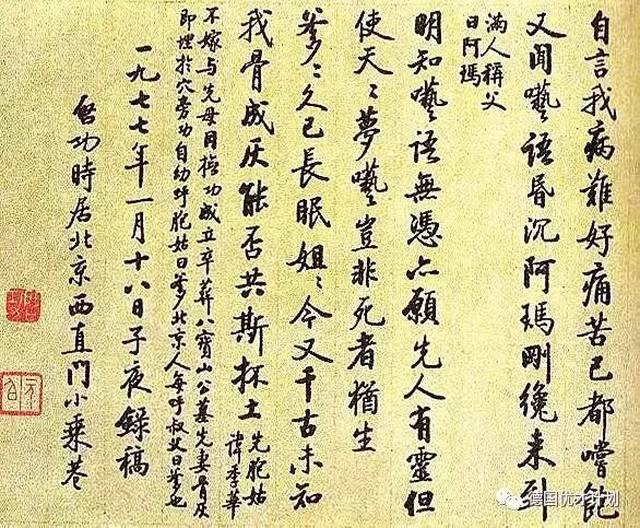 自言我病難好痛苦已都嚐飽
又聞囈語昏沉阿瑪剛纔來到
滿人稱父
曰阿瑪
明知囈語無憑亦願先人有靈但
使天〻夢囈豈非死者猶生
爹〻久已長眠姐〻今又千古未知
我骨成灰能否共斯抔土
先胞姑
諱季華
不嫁與先母同撫功成立卒葬八寶山公墓先妻骨灰
即埋於穴旁功自幼呼胞姑曰爹北京人每呼叔父曰爹也
一九七七年一月十八日子夜錄稿
啓功時居北京西直門小乘巷
德国优才计划